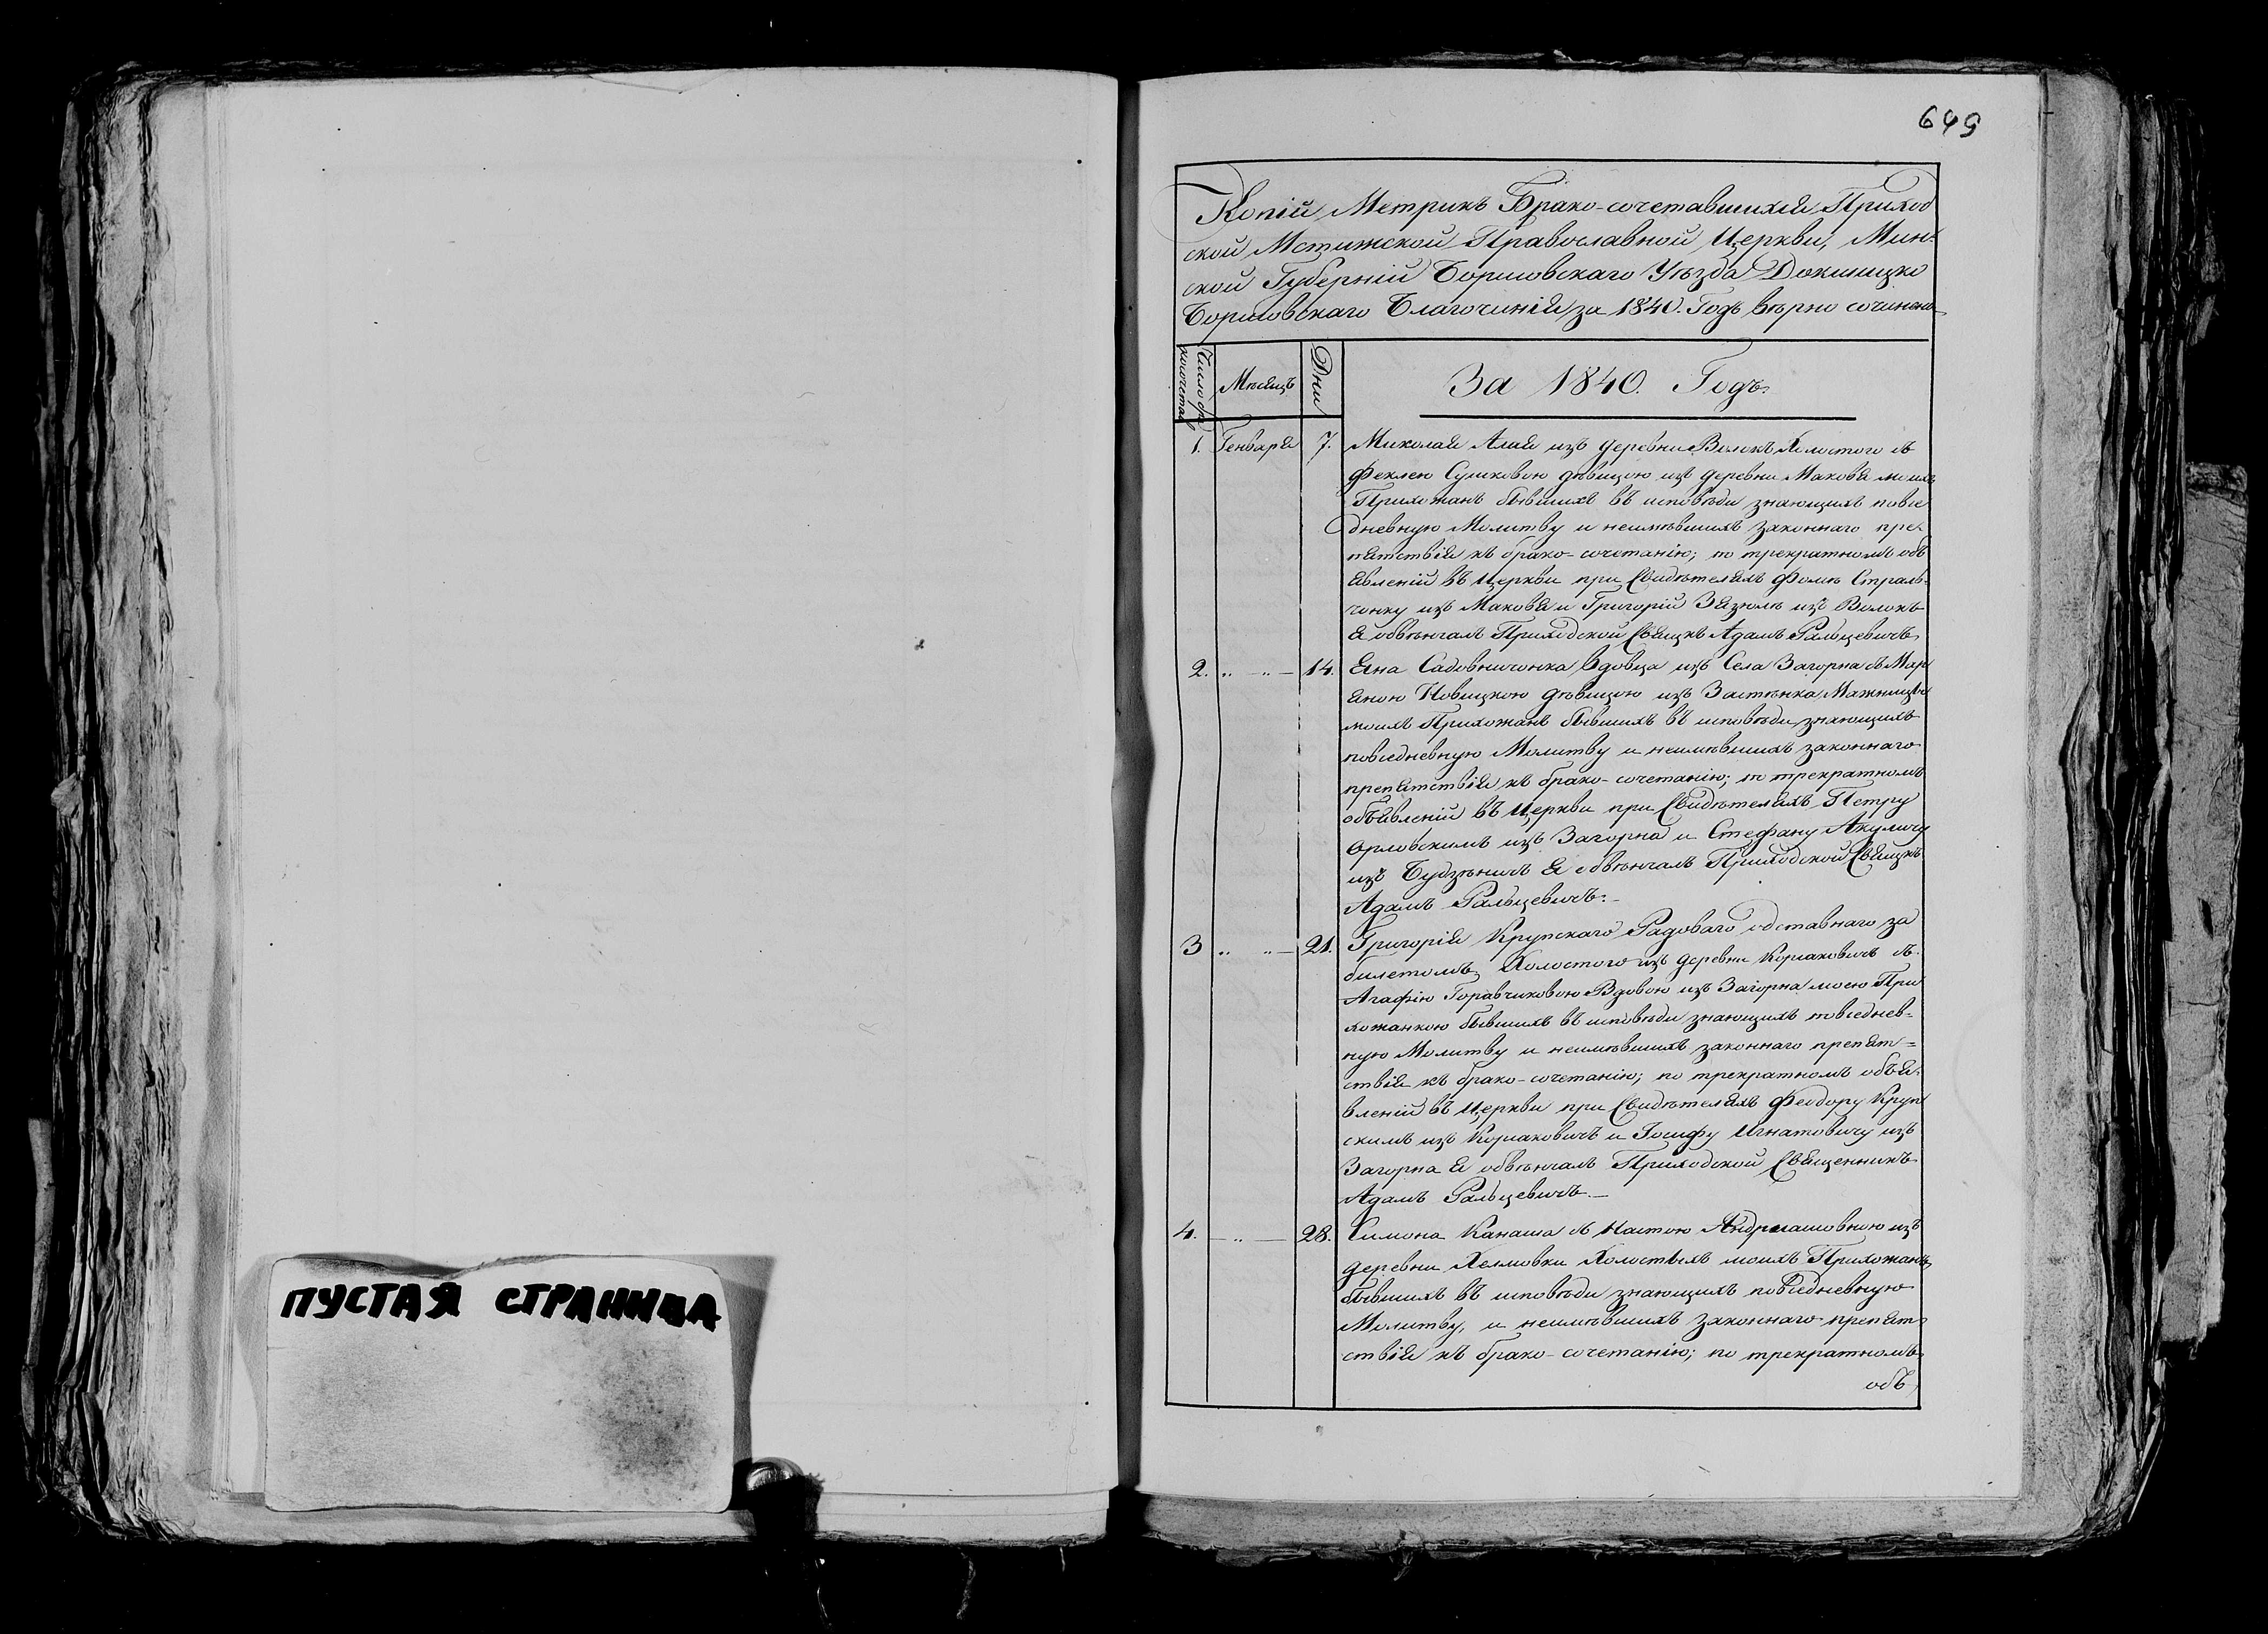 ПУСТАЯ СТРАНИЦА
649
Копій Метрикъ Брако-сочетавшихся Приход
ской Мстижской Православной Церкви, Мин-
ской Губерніи Борисовскаго Уѣзда Докшицко
Борисовскаго Благочинія за 1840. Годъ вѣрно сочинено
Число бра
косочета
Мѣсяцъ
Дни
За 1840. Годъ.
1. Генваря 7. Миколая Алая изъ деревни Волокъ Холостого съ
Феклею Сушковою дѣвицою изъ деревни Маковя моихъ
Прихожанъ бывшихъ въ исповѣди знающихъ повсе
дневную Молитву и неимѣвшихъ законнаго пре-
пятствія къ брако-сочетанію; по трекратномъ объ
явленій въ Церкви при Свидѣтеляхъ Фомѣ Страль-
чонку изъ Маковя и Григорій Зязюлѣ изъ Волокъ
я обвѣнчалъ Приходской Свящкъ Адамъ Ральцевичъ
2. „ — „ — 14. Яна Садовничонка вдовца изъ Села Загорна съ Мар
яною Новицкою дѣвицою изъ Застѣнка Мажницы
моихъ Прихожанъ бывшихъ въ исповѣди знающихъ
повседневную Молитву и неимѣвшихъ законнаго
препятствія къ брако-сочетанію; по трекратномъ
объявленій въ Церкви при Свидѣтеляхъ Петру
Орловскимъ изъ Загорна и Стефану Акуличу
изъ Будзѣничъ я обвѣнчалъ Приходской Свящкъ
Адамъ Ральцевичъ.
3 „ „ — 21. Григорія Крупскаго Радоваго одставнаго за
билетомъ Холостого изъ деревни Корсаковичъ съ
Агафію Горавчиковою Вдовою изъ Загорна моею При
хожанкою бывшихъ въ исповѣди знающихъ повседнев-
ную Молитву и неимѣвшихъ законнаго препят=
ствія къ брако-сочетанію; по трекратномъ объя-
вленій въ Церкви при Свидѣтеляхъ Феодору Круп
скимъ изъ Корсаковичъ и Іосифу Игнатовичу изъ
Загорна я обвѣнчалъ Приходской Священникъ
Адамъ Ральцевичъ.—
4. — „ — 28. Симона Канаша съ Настою Андрыашовною изъ
деревни Хелмовки Холостыхъ моихъ Прихожанъ
бывшихъ въ исповѣди знающихъ повседневную
Молитву, и неимѣвшихъ законнаго препят-
ствія къ брако-сочетанію; по трекратномъ
объ